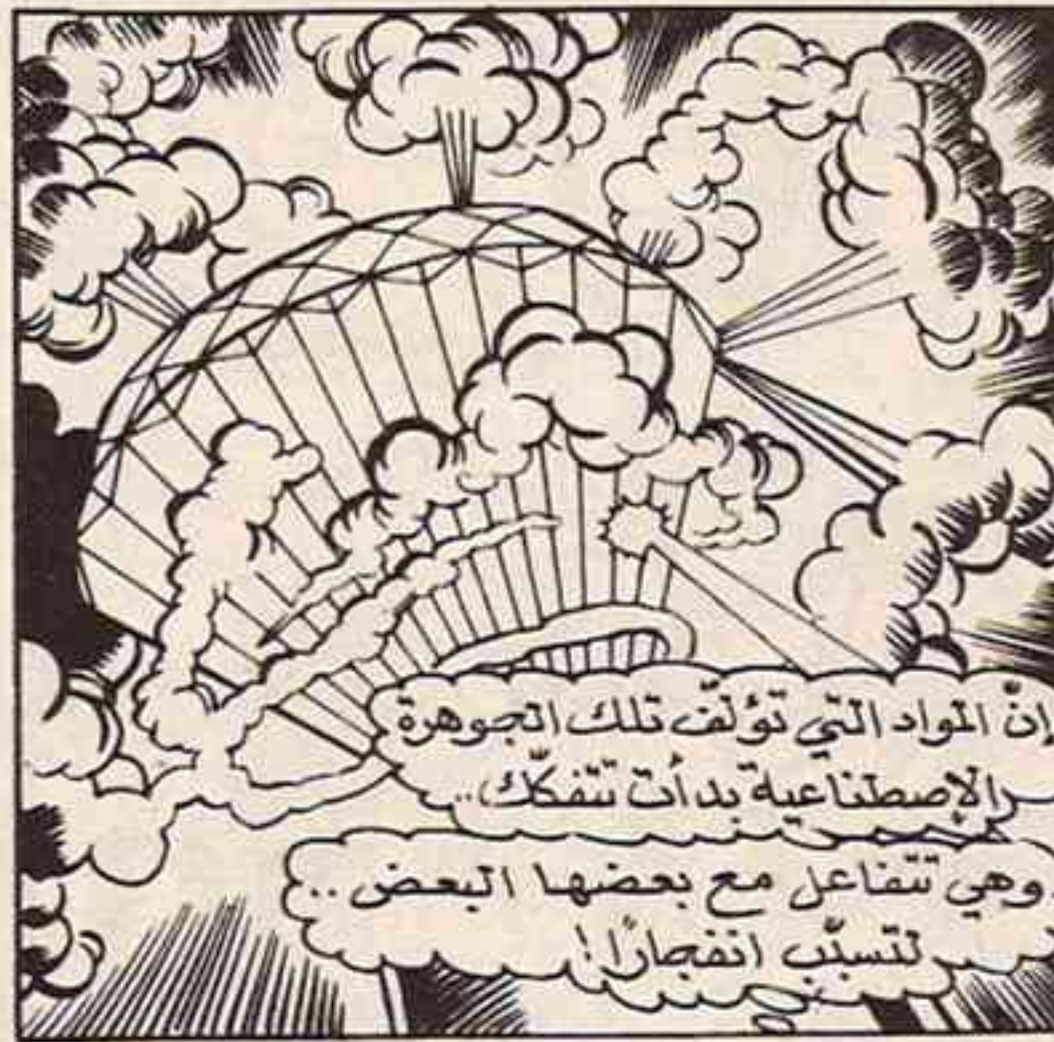 إنّ المواد التي تؤلّف تلك الجوهرة
الإصطناعية بدأت تتفكّك..
وهي تتفاعل مع بعضها البعض..
لتسبّب انفجارًا!